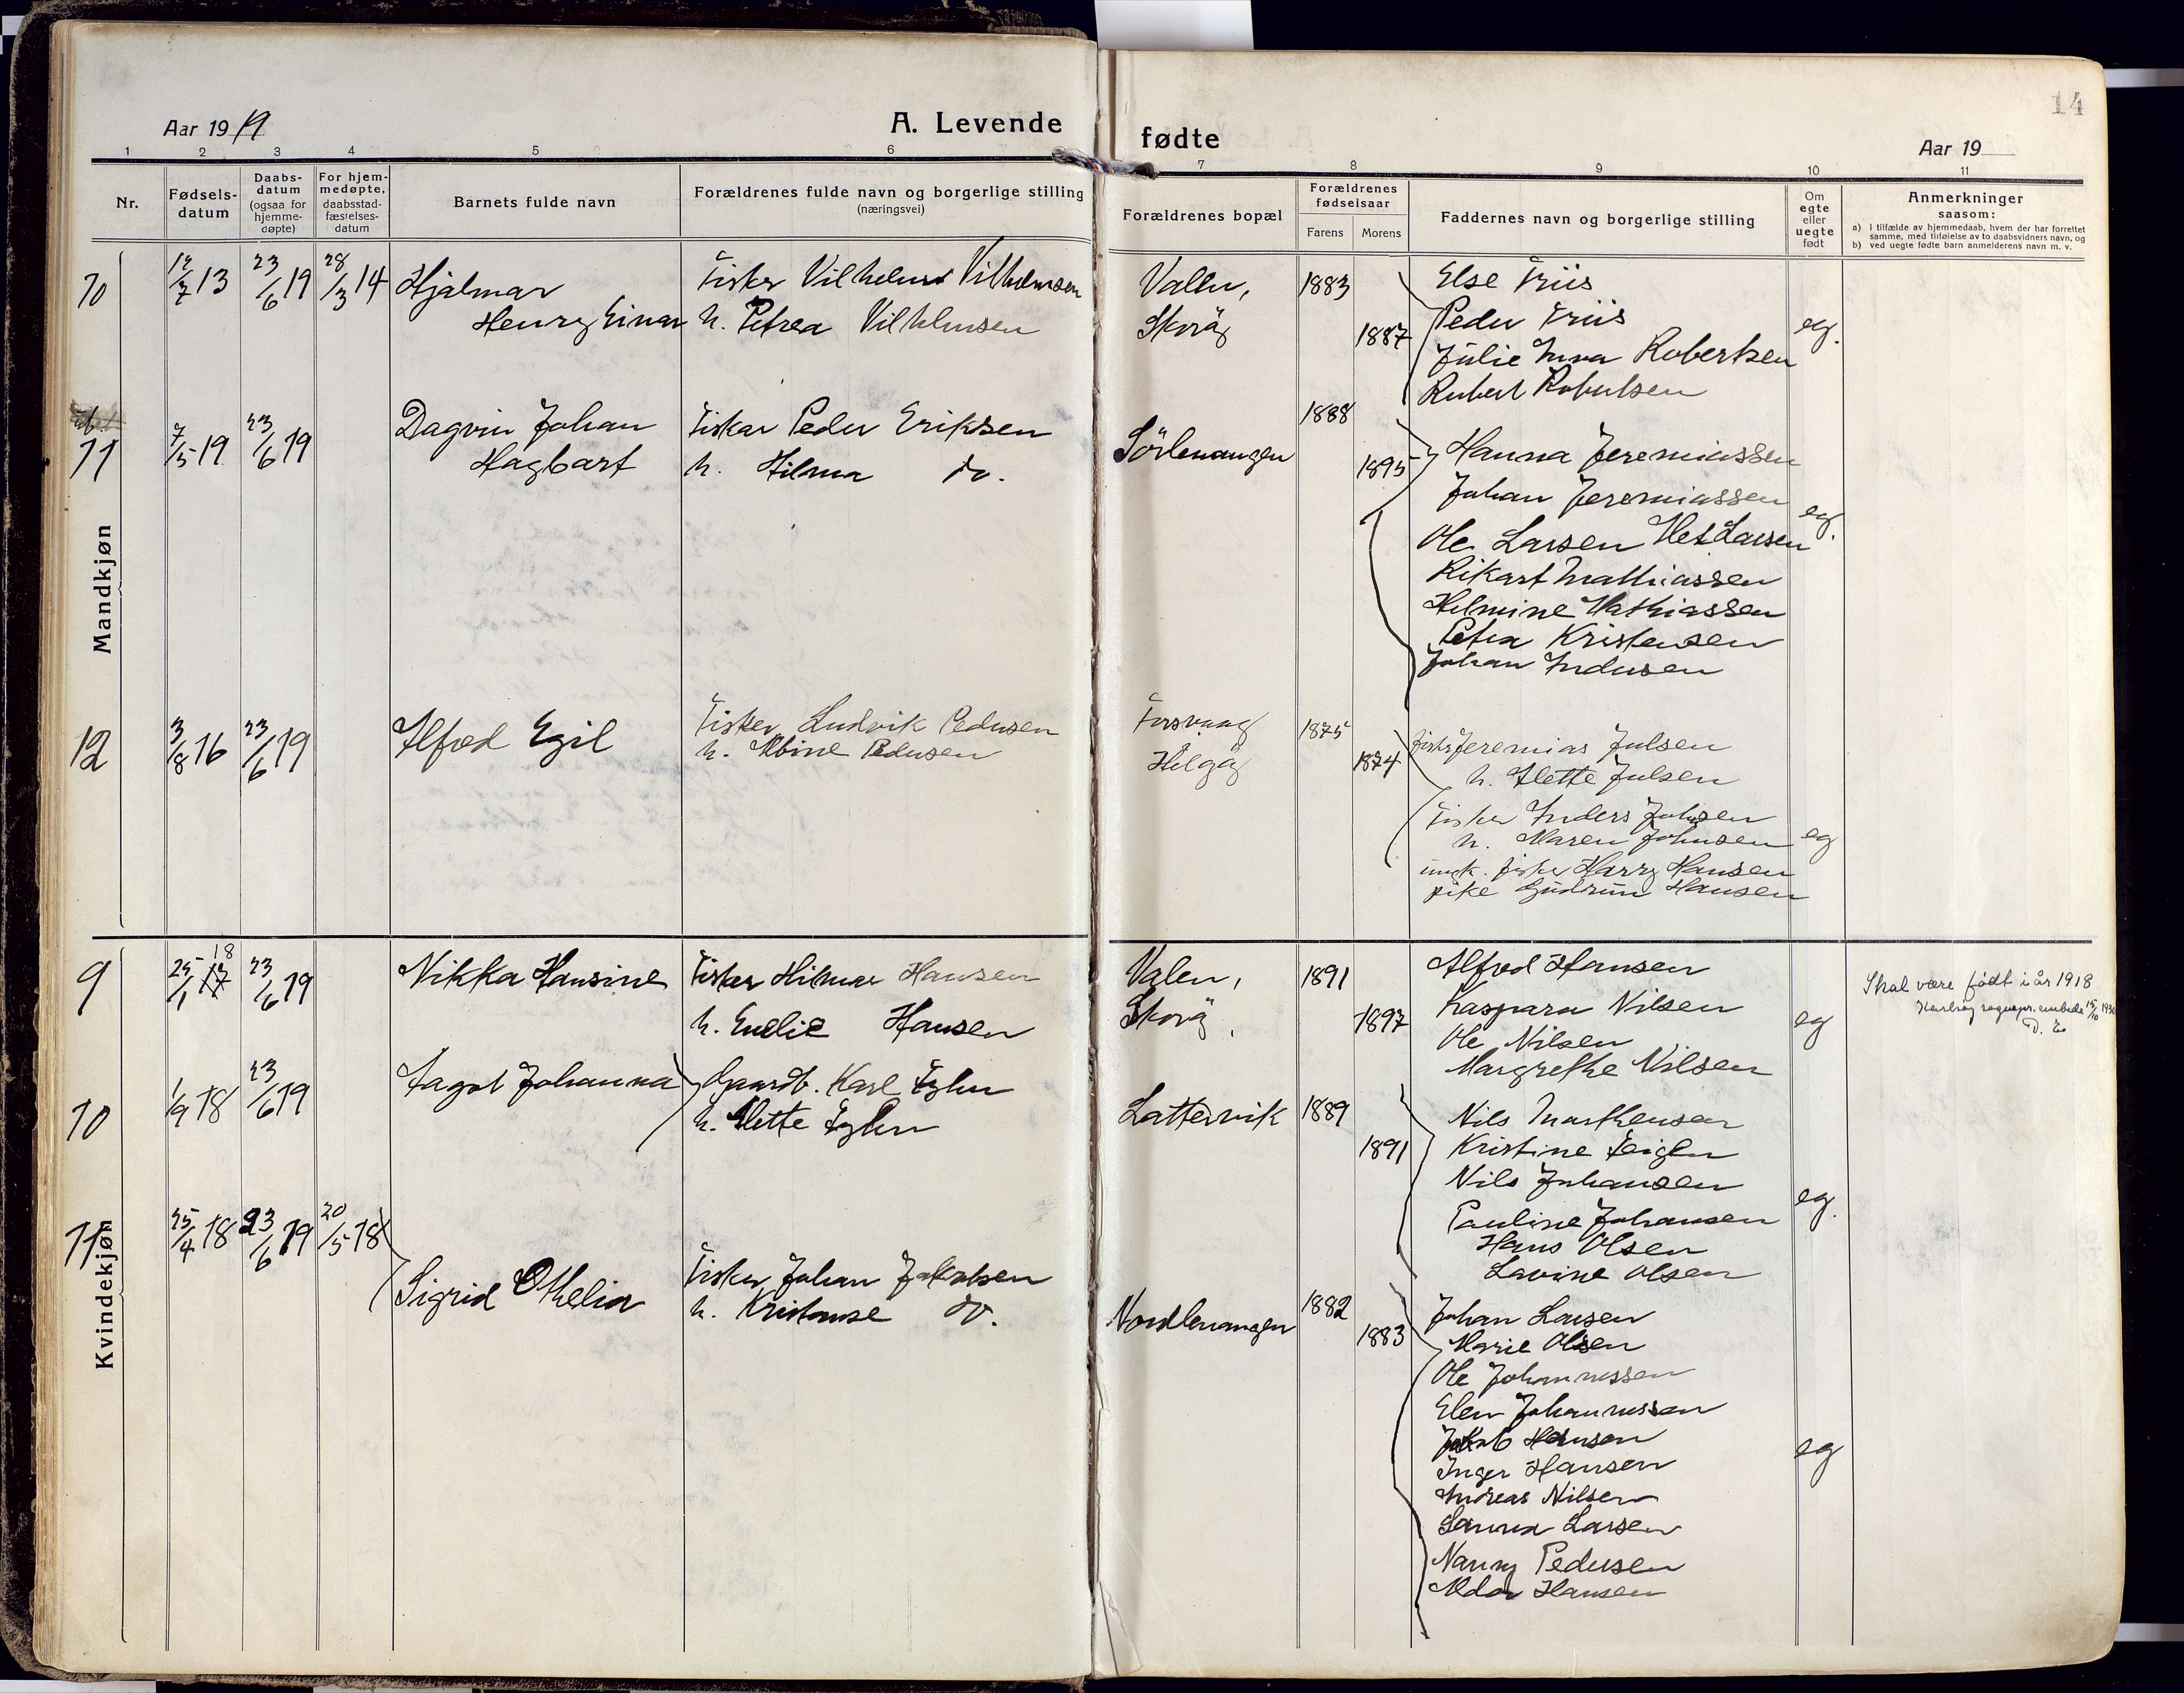 Aar 1919
A. Levende
fødte
Aar 19
14
1 2 3 4 5 6 7 8 9 10 11
Nr.
Fødsels-
datum
Daabs-
datum
(ogsaa for
hjemme-
døpte)
For hjem-
medøpte,
daabsstad-
fæstelses-
datum
Barnets fulde navn
Forældrenes fulde navn og borgerlige stilling
(næringsvei)
Forældrenes bopæl
Forældrenes
fødselsaar
Farens Morens
Faddernes navn og borgerlige stilling
Om
egte
eller
uegte
født
Anmerkninger
saasom:
a) i tilfælde av hjemmedaab, hvem der har forrettet
samme, med tilføielse av to daabsvidners navn, og
b) ved uegte fødte barn anmelderens navn m. v.
Mandkjøn
10 12/7 13 23/6 19 28/3 14 Hjalmar
Henry Einar
Fisker Vilhelm Vilhelmsen
h. Petrea Vilhelmsen
Vallen,
Skorö
1883
1887
Else Friis
Peder Friis
Julie Robertsen
Robert Robertsen
eg.
11 7/5 19 23/6 19 Dagvin Johan
Hagbart
Fisker Peder Eriksen
h. Hilma do.
Sörlenangen
1888
1895
Hanna Jeremiassen
Johan Jeremiassen
Ole Larsen Larsen
Rikart Mathiassen
Helmine Mathiassen
Petra Kristensen
Johan Andersen
eg.
12 3/8 16 23/6 19 Alfred Egil
Fisker Ludvik Pedersen
h. Albine Pedersen
Torsvaag
Helgö
1875
1874
fisker Jeremias Julsen
h. Alette Julsen
Fisker Anders Johnsen
h. Maren Johnsen
ungk. fisker Harry Hansen
pike Gudrun Hansen
eg
Kvindekjøn
9 25/1 17 18 23/6 19 Nikka Hansine
Fisker Hilmar Hansen
h. Emelie Hansen
Valen,
Skorö,
1891
1897
Alfred Hansen
Kaspara Nilsen
Ole Nilsen
Margrethe Nilsen
eg
Skal være født i år 1918
Karlsøy sogneprestembede 15/10
10 1/9 18 23/6 19 Aagot Johanna
Gaardb. Karl
h. Alette
Lattervik
1889
1891
Nils Marthensen
Kristine
Nils Johansen
Pauline Johansen
Hans Olsen
Lavine Olsen
eg.
11 25/4 18 23/6 19 20/5 18
Sigrid Othelia
Fisker Johan Jakobsen
h. Kristanse do.
Nordlenangen
1882
1883
Johan Larsen
Marie Olsen
Ole Johannessen
Elen Johannessen
Jakob Hansen
Inger Hansen
Andreas Nilsen
Sanna Larsen
Nanny Pedersen
Aldor Hansen
eg